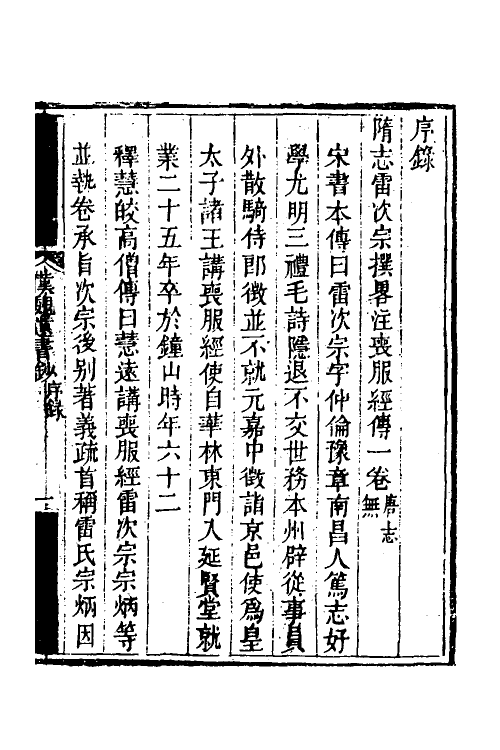 序錄
隋志雷次宗撰畧注喪服經傳一卷唐志無
宋書本傳曰雷次宗字仲倫豫章南昌人篤志好
學尤明三禮毛詩隱退不交世務本州辟從事員
外散騎侍郎徵並不就元嘉中徵詣京邑使爲皇
太子諸王講喪服經使自華林東門入延賢堂就
業二十五年卒於鐘山時年六十二
釋慧皎高僧傳曰慧遠講喪服經雷次宗宗炳等
並執卷承旨次宗後別著義疏首稱雷氏宗炳因
漢魏遺書鈔 序錄 一